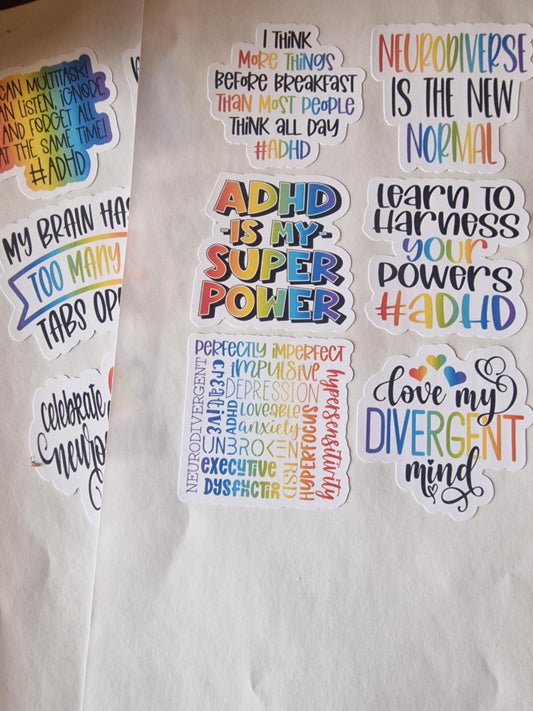 CAN MULTITASK!
AN LISTEN, IGNORE
AND FORGET ALL
AT THE SAME TIME!
#ADHD
MY BRAIN HAS
TOO MANY
TABS OPE
celebrate
neuro
I THINK
MORE THINGS
BEFORE BREAKFAST
THAN MOST PEOPLE
THINK ALL DAY
#ADHD
NEURODIVERSE
IS THE NEW
NORMAL
ADHD
-IS MY-
SUPER
POWER
LEARN TO
HARNESS
YOUR
POWERS
#ADHD
PERFECTLY IMPERFECT
IMPULSIVE
DEPRESSION
NEURODIVERGENT
creative
ADHD
LOVEABLE
anxiety
UNBROKEN
EXECUTIVE
DYSFXCTIN
RSD
HYPERFOCUS
hypersensitivity
love my
DIVERGENT
mind